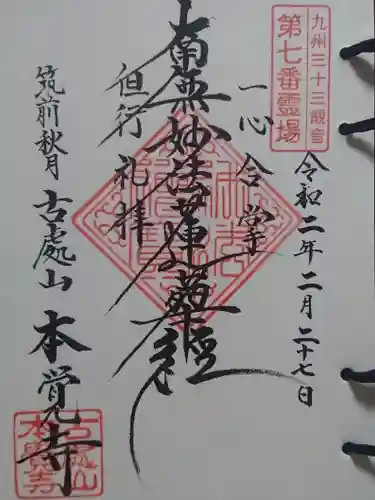 九州三十三観音
第七番霊場
令和二年二月二十七日
一心合掌
南無妙法蓮華経
但行礼拝
筑前秋月
古處山
本覚寺
古處山
本覺寺